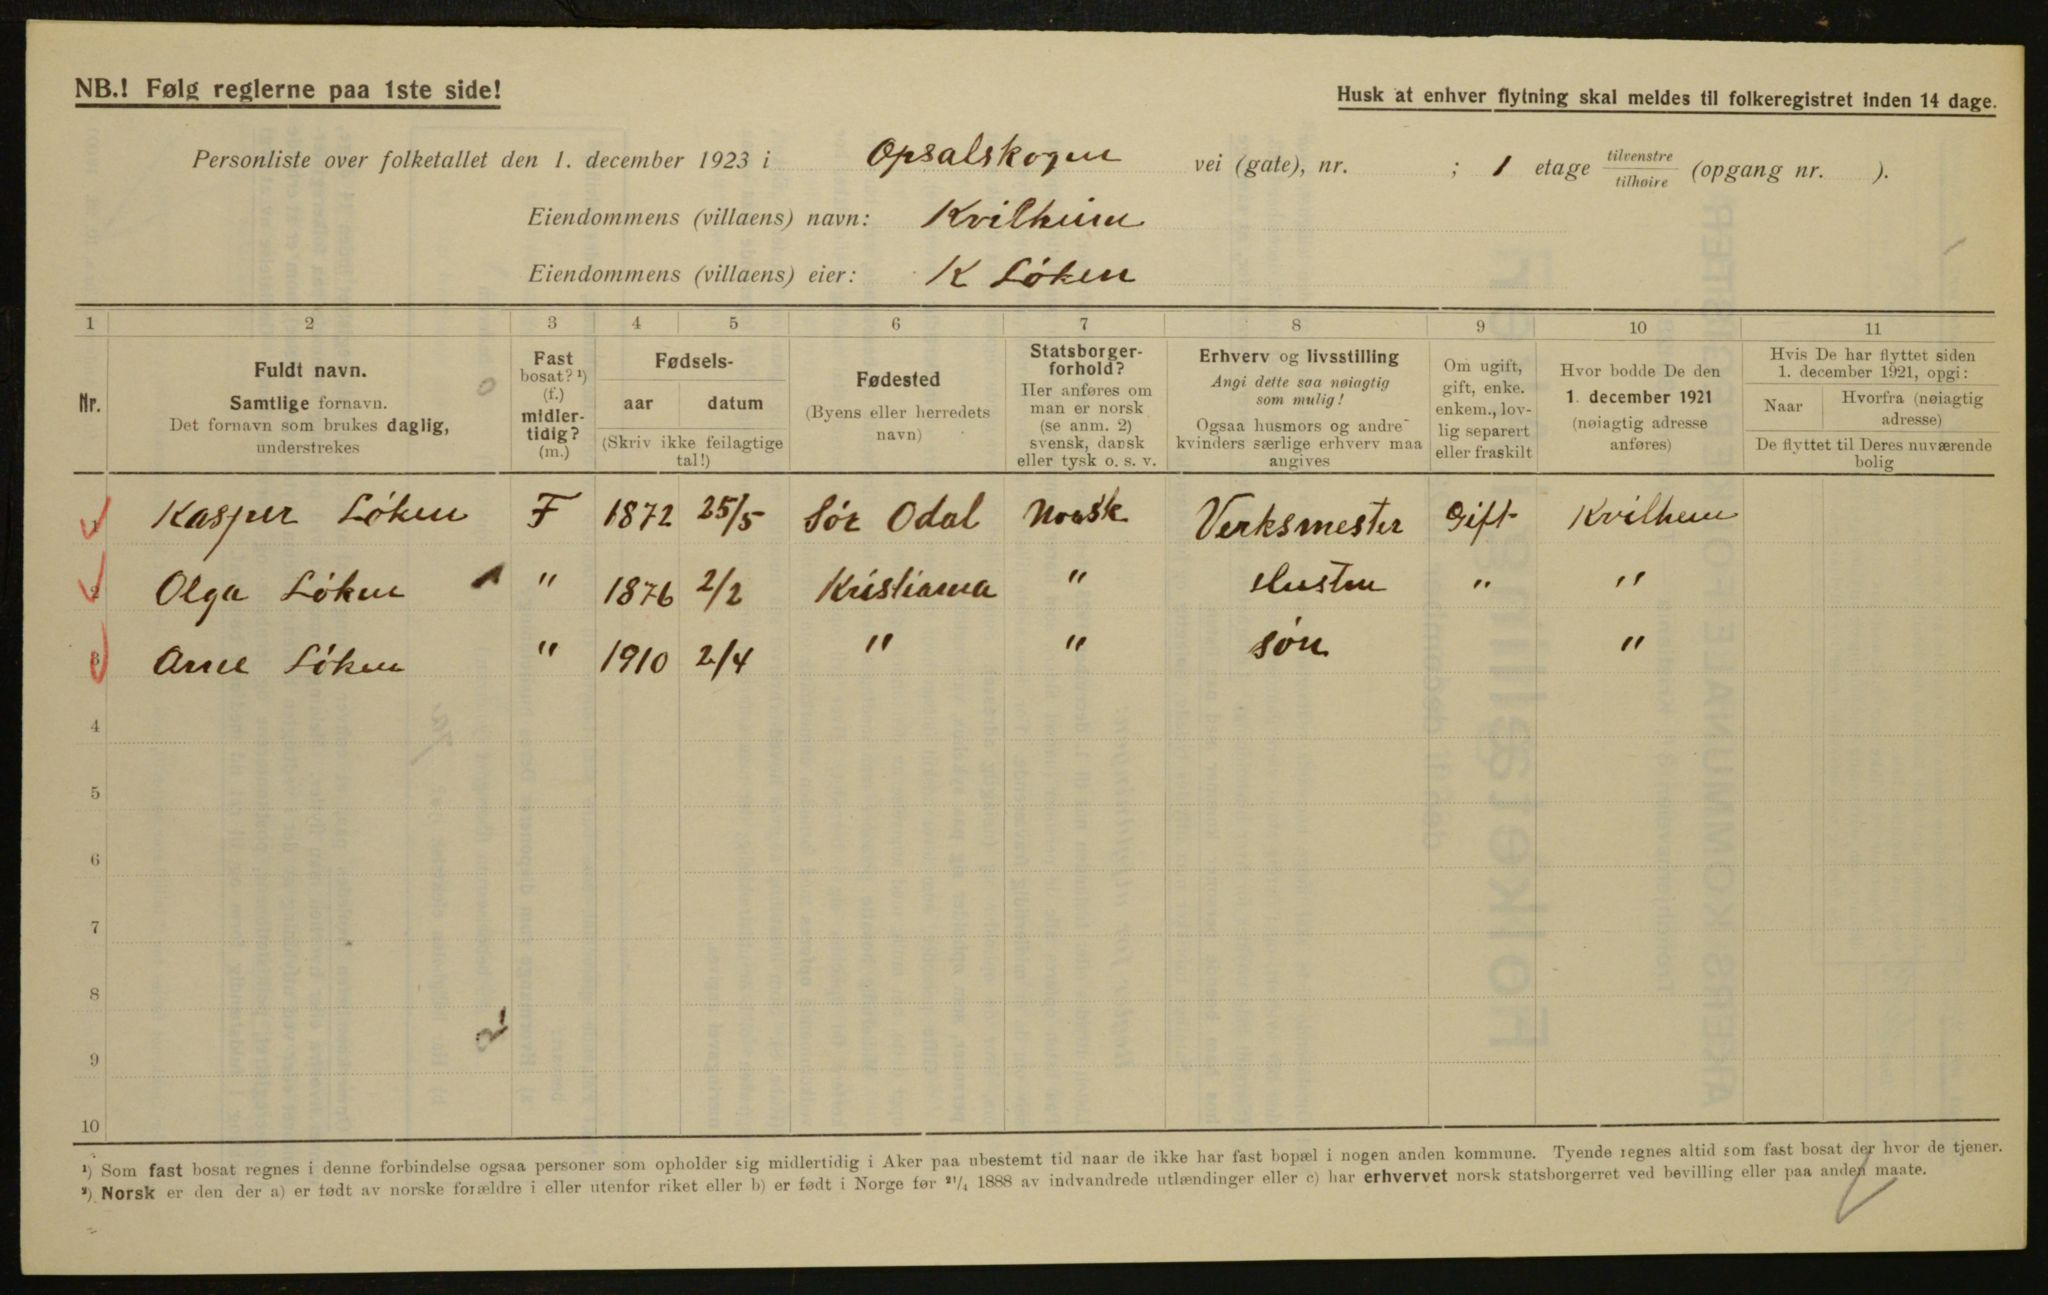 NB.! Følg reglerne paa 1ste side!
Husk at enhver flytning skal meldes til folkeregistret inden 14 dage.
Personliste over folketallet den 1. december 1923 i Opsalskogen vei (gate), nr. ; 1 etage tilvenstre / tilhøire (opgang nr. ).
Eiendommens (villaens) navn: Kvilheim
Eiendommens (villaens) eier: K Løken
1 2 3 4 5 6 7 8 9 10 11
Nr.
Fuldt navn.
Samtlige fornavn.
Det fornavn som brukes daglig,
understrekes
Fast
bosat? ¹)
(f.)
midler-
tidig?
(m.)
Fødsels-
aar datum
(Skriv ikke feilagtige
tal!)
Fødested
(Byens eller herredets
navn)
Statsborger-
forhold?
Her anføres om
man er norsk
(se anm. 2)
svensk, dansk
eller tysk o. s. v.
Erhverv og livsstilling
Angi dette saa nøiagtig
som mulig!
Ogsaa husmors og andre
kvinders særlige erhverv maa
angives
Om ugift,
gift, enke.
enkem., lov-
lig separert
eller fraskilt
Hvor bodde De den
1. december 1921
(nøiagtig adresse
anføres)
Hvis De har flyttet siden
1. december 1921, opgi:
Naar
Hvorfra (nøiagtig
adresse)
De flyttet til Deres nuværende
bolig
1 Kasper Løken F 1872 25/5 Sør Odal Norsk Verksmester Gift Kvilheim
2 Olga Løken " 1876 2/2 Kristiania " Hustru " "
3 Arne Løken " 1910 2/4 " " søn "
4
5
6
7
8
9
10
¹) Som fast bosat regnes i denne forbindelse ogsaa personer som opholder sig midlertidig i Aker paa ubestemt tid naar de ikke har fast bopæl i nogen anden kommune. Tyende regnes altid som fast bosat der hvor de tjener.
²) Norsk er den der a) er født av norske forældre i eller utenfor riket eller b) er født i Norge før ²¹/₄ 1888 av indvandrede utlændinger eller c) har erhvervet norsk statsborgerret ved bevilling eller paa anden maate.